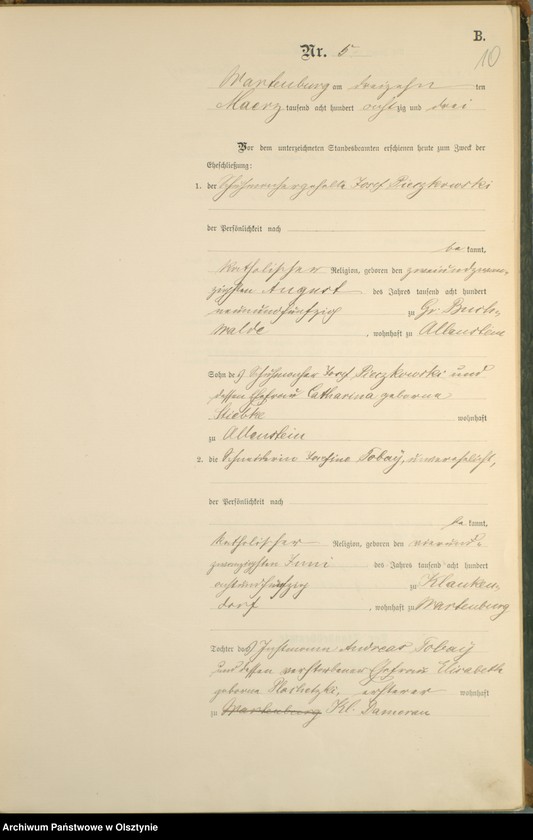 B.
10
Nr. 5
Wartenburg am dreizehn ten
Maerz tausend acht hundert achtzig und drei
Vor dem unterzeichneten Standesbeamten erschienen heute zum Zweck der
Eheschließung:
1. der Schuhmachergeselle Josef
der Persönlichkeit nach
be kannt,
katholischer Religion, geboren den zweiundzwan-
zigsten August des Jahres tausend acht hundert
neunundfünfzig zu Gr. Buch-
walde, wohnhaft zu Allenstein
Sohn des Schuhmacher Josef und
dessen Ehefrau Catharina geborne
wohnhaft
zu Allenstein
2. die Schneiderin Josefine Tobay, unverehelicht,
der Persönlichkeit nach
be kannt,
katholischer Religion, geboren den vierund-
zwanzigsten Juni des Jahres tausend acht hundert
achtundfünfzig zu Klauken-
dorf, wohnhaft zu Wartenburg
Tochter des Instmann Andreas Tobay
und dessen verstorbener Ehefrau Elisabeth
geborne ersterer wohnhaft
zu Wartenburg Kl. Damerau
Archiwum Państwowe w Olsztynie